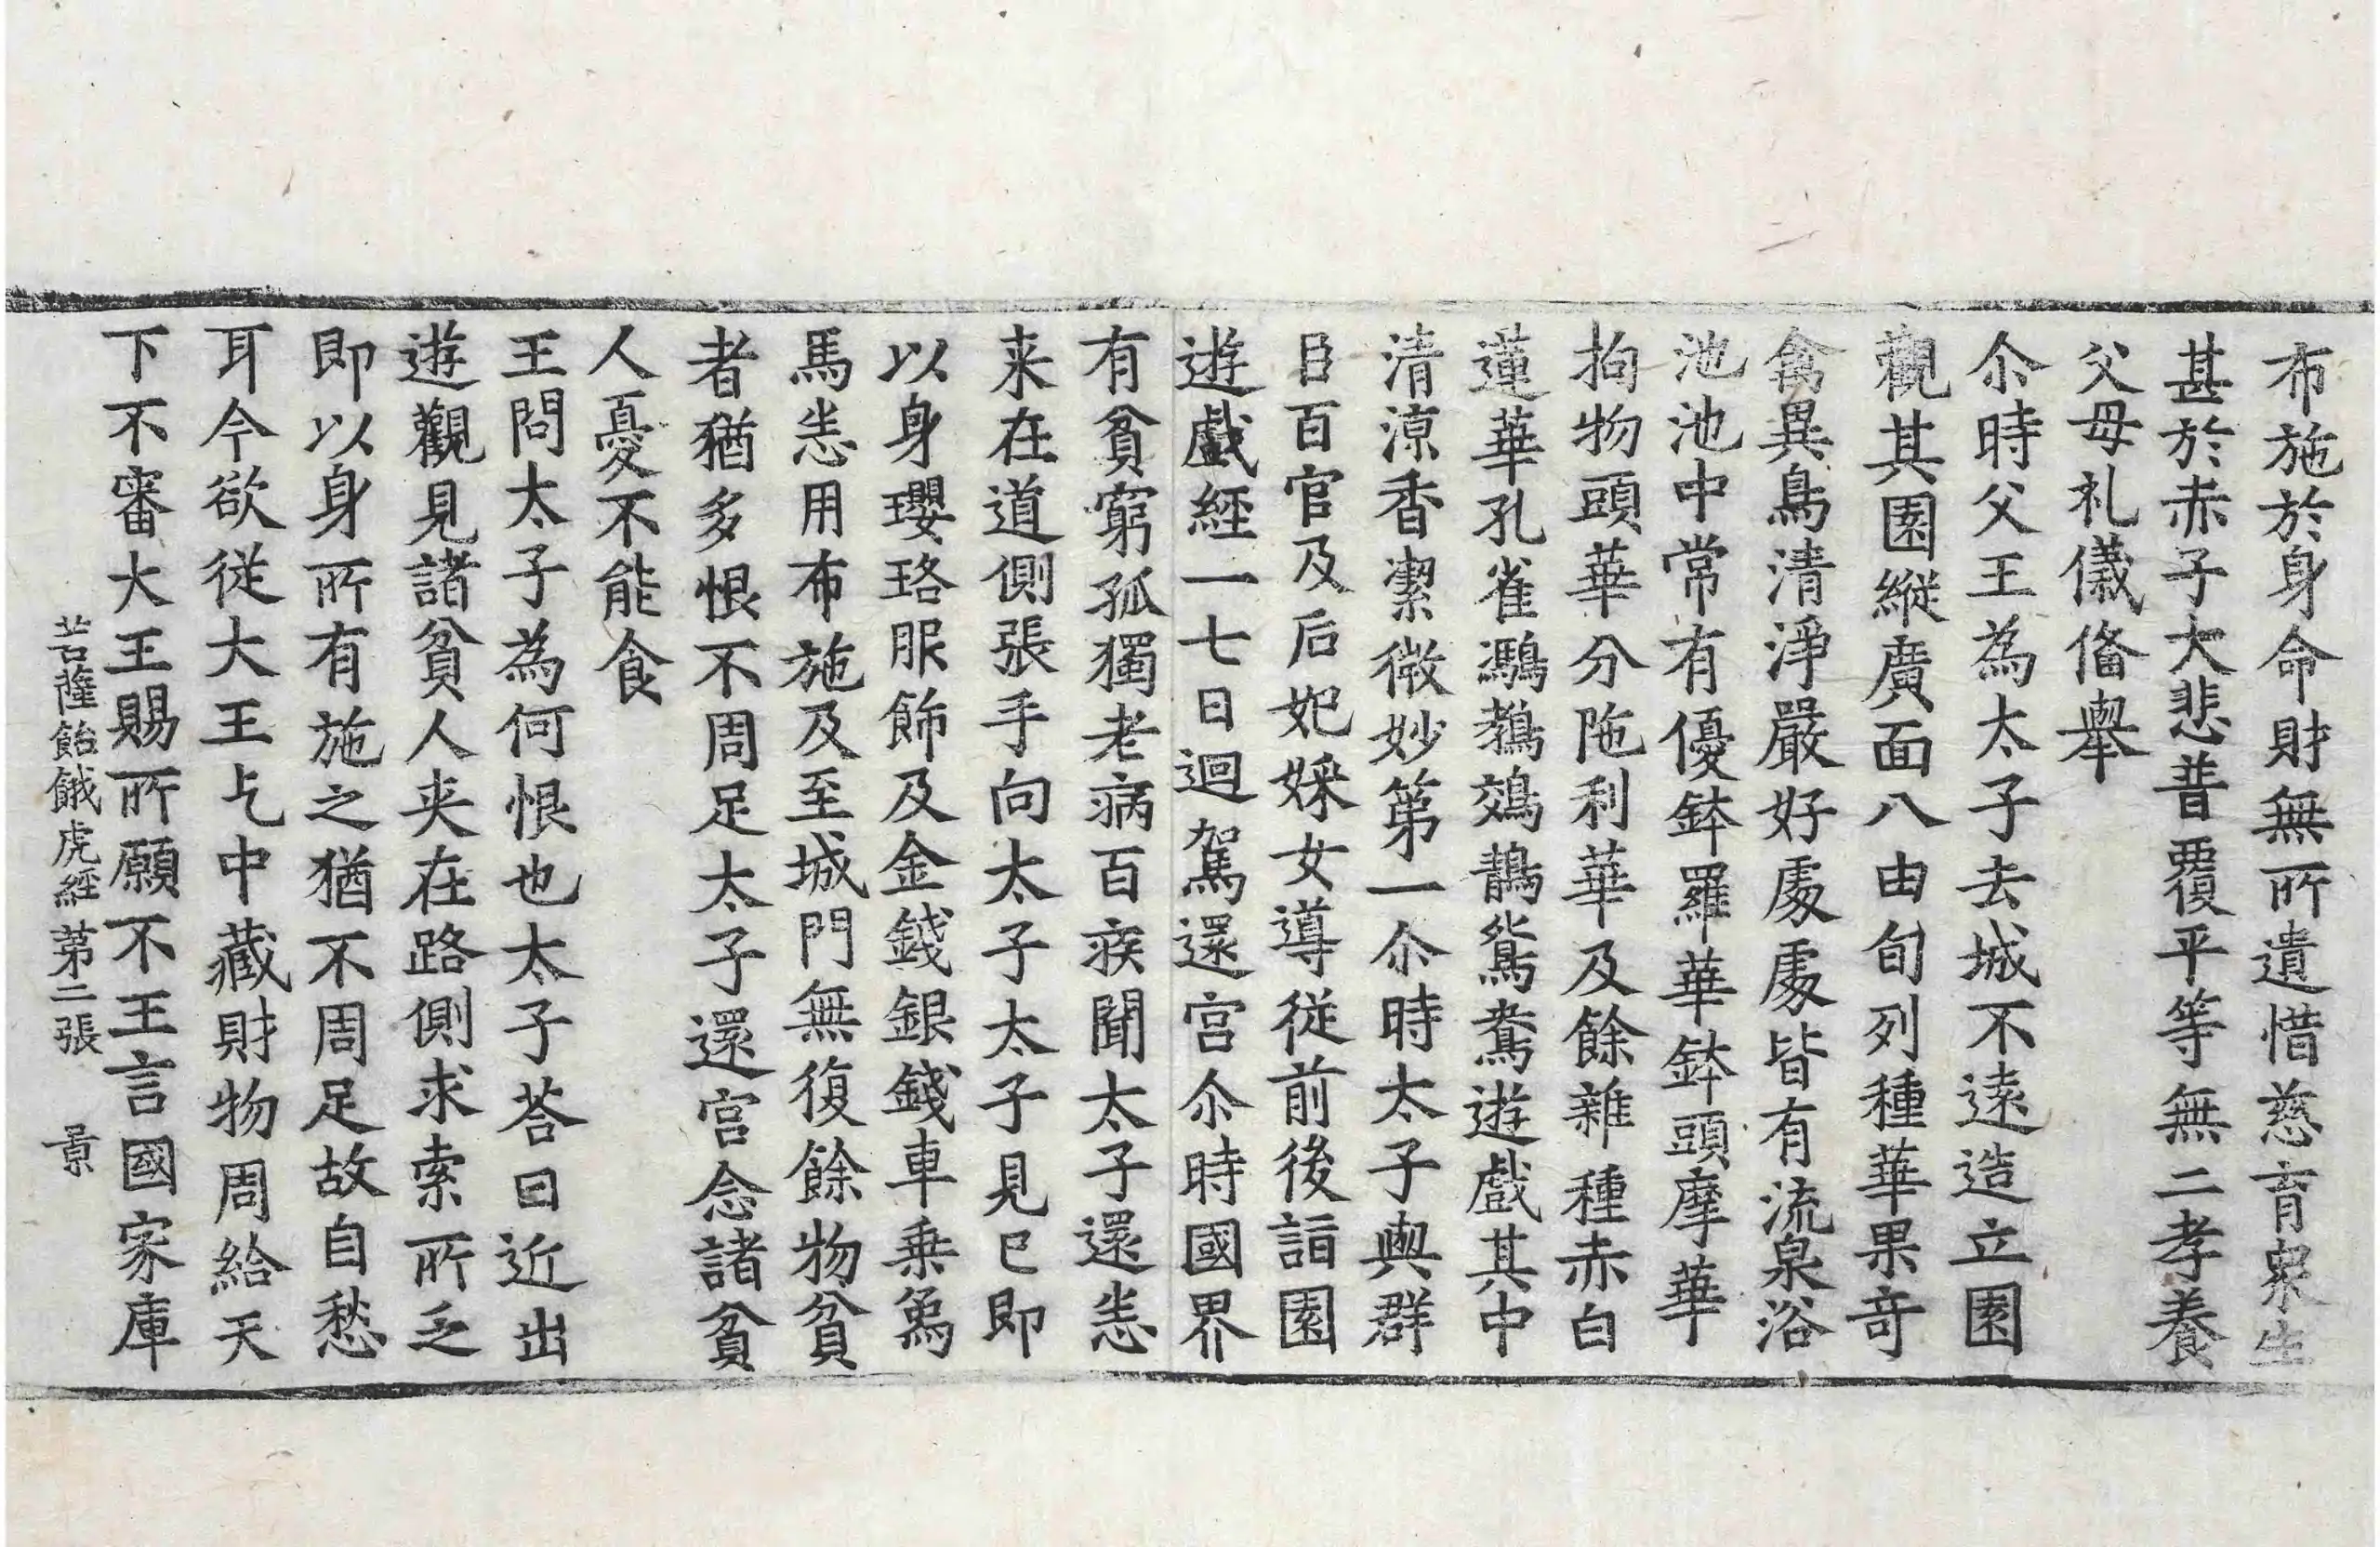 布施於身命財無所遺惜慈育衆生
甚於赤子大悲普覆平等無二孝養
父母礼儀俻舉
尒時父王為太子去城不遠造立園
觀其園縱廣面八由旬列種華果奇
禽異鳥清淨嚴好處處皆有流泉浴
池池中常有優鉢羅華鉢頭摩華
拘物頭華分陁利華及餘雜種赤白
蓮華孔雀鸂鶒鵁鶄鴛鴦遊戲其中
清涼香潔微妙第一尒時太子與群
臣百官及后妃婇女導從前後詣園
遊戲經一七日迴駕還宮尒時國界
有貧窮孤獨老病百疾聞太子還悉
来在道側張手向太子太子見已即
以身瓔珞服飾及金錢銀錢車乗象
馬悉用布施及至城門無復餘物貧
者猶多恨不周足太子還宮念諸貧
人憂不能食
王問太子為何恨也太子荅曰近出
遊觀見諸貧人夾在路側求索所乏
即以身所有施之猶不周足故自愁
耳今欲從大王乞中藏財物周給天
下不審大王賜所願不王言國家庫
菩薩飴餓虎經第二張　景